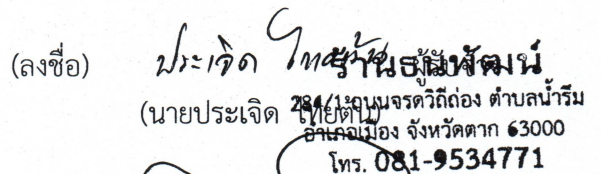 (ลงชื่อ) ประเจิด ไทยตัน ผู้รับจ้าง
ร้านธนพัฒน์
(นายประเจิด ไทยตัน)
284/1 ถนนจรดวิถีถ่อง ตำบลน้ำรึม
อำเภอเมือง จังหวัดตาก 63000
โทร. 081-9534771